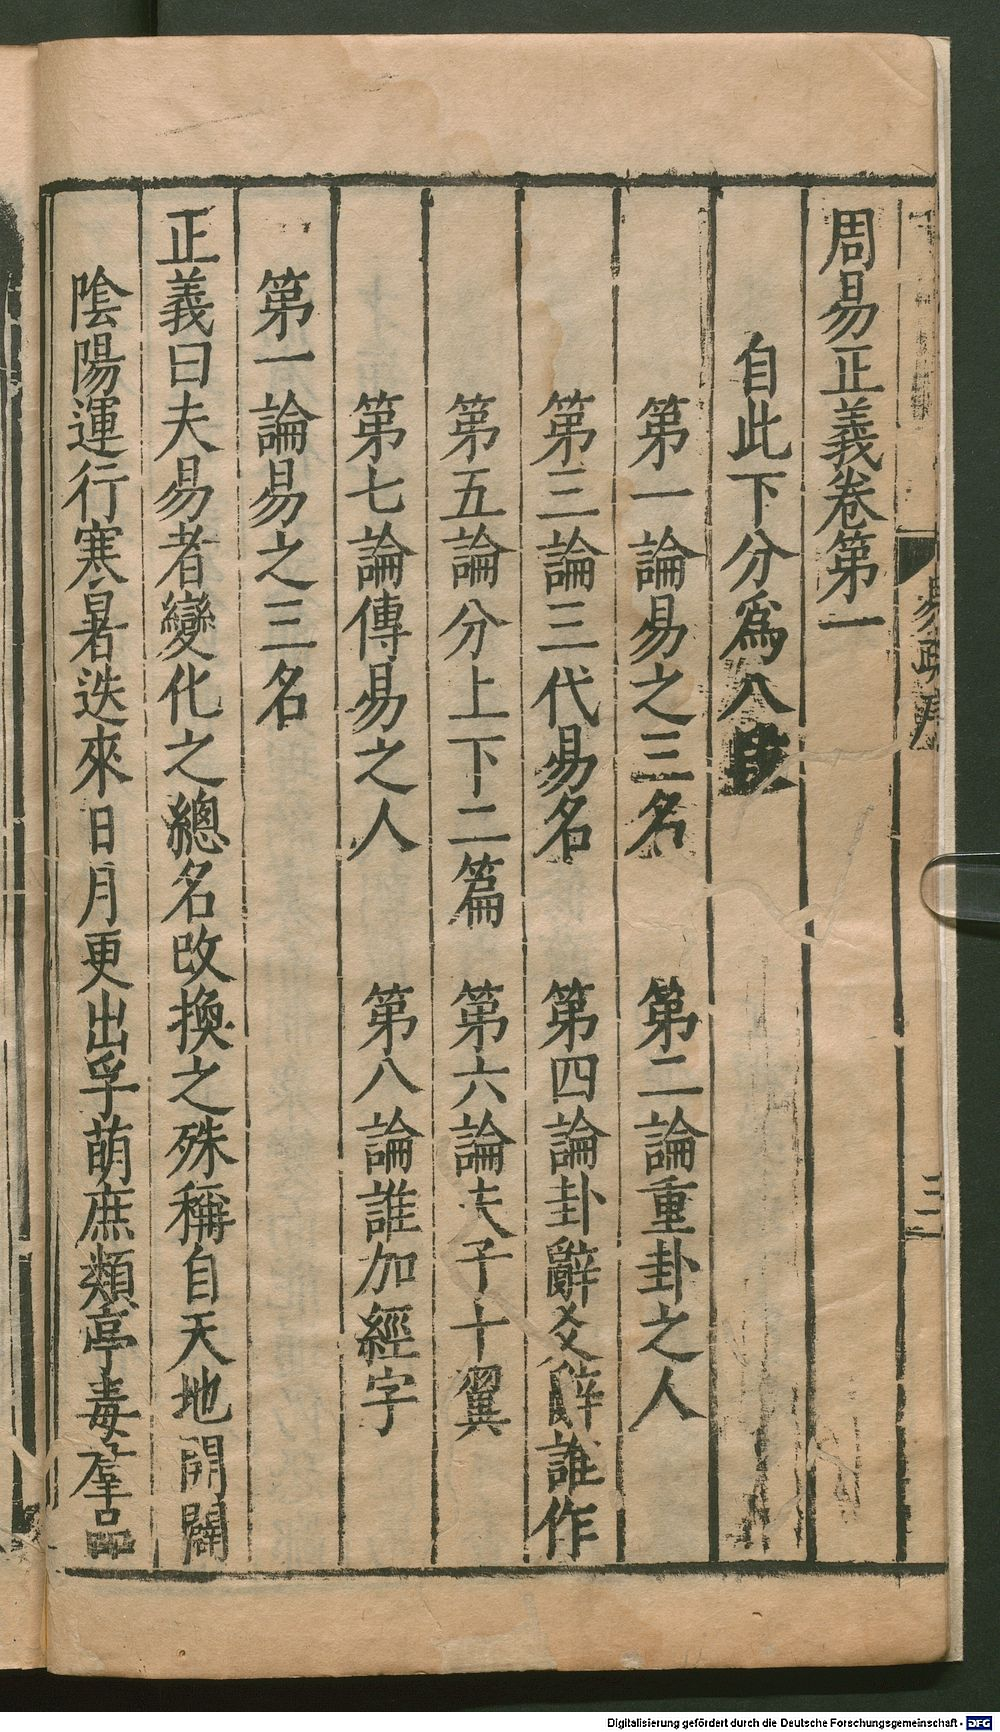 周易正義卷第一
自此下分爲八段
第一論易之三名 第二論重卦之人
第三論三代易名 第四論卦辭爻辭誰作
第五論分上下二篇 第六論夫子十翼
第七論傳易之人 第八論誰加經字
第一論易之三名
正義曰夫易者變化之總名改換之殊稱自天地開闢
陰陽運行寒暑迭來日月更出孚萌庶類亭毒羣品
易疏序
三
Digitalisierung gefördert durch die Deutsche Forschungsgemeinschaft - DFG